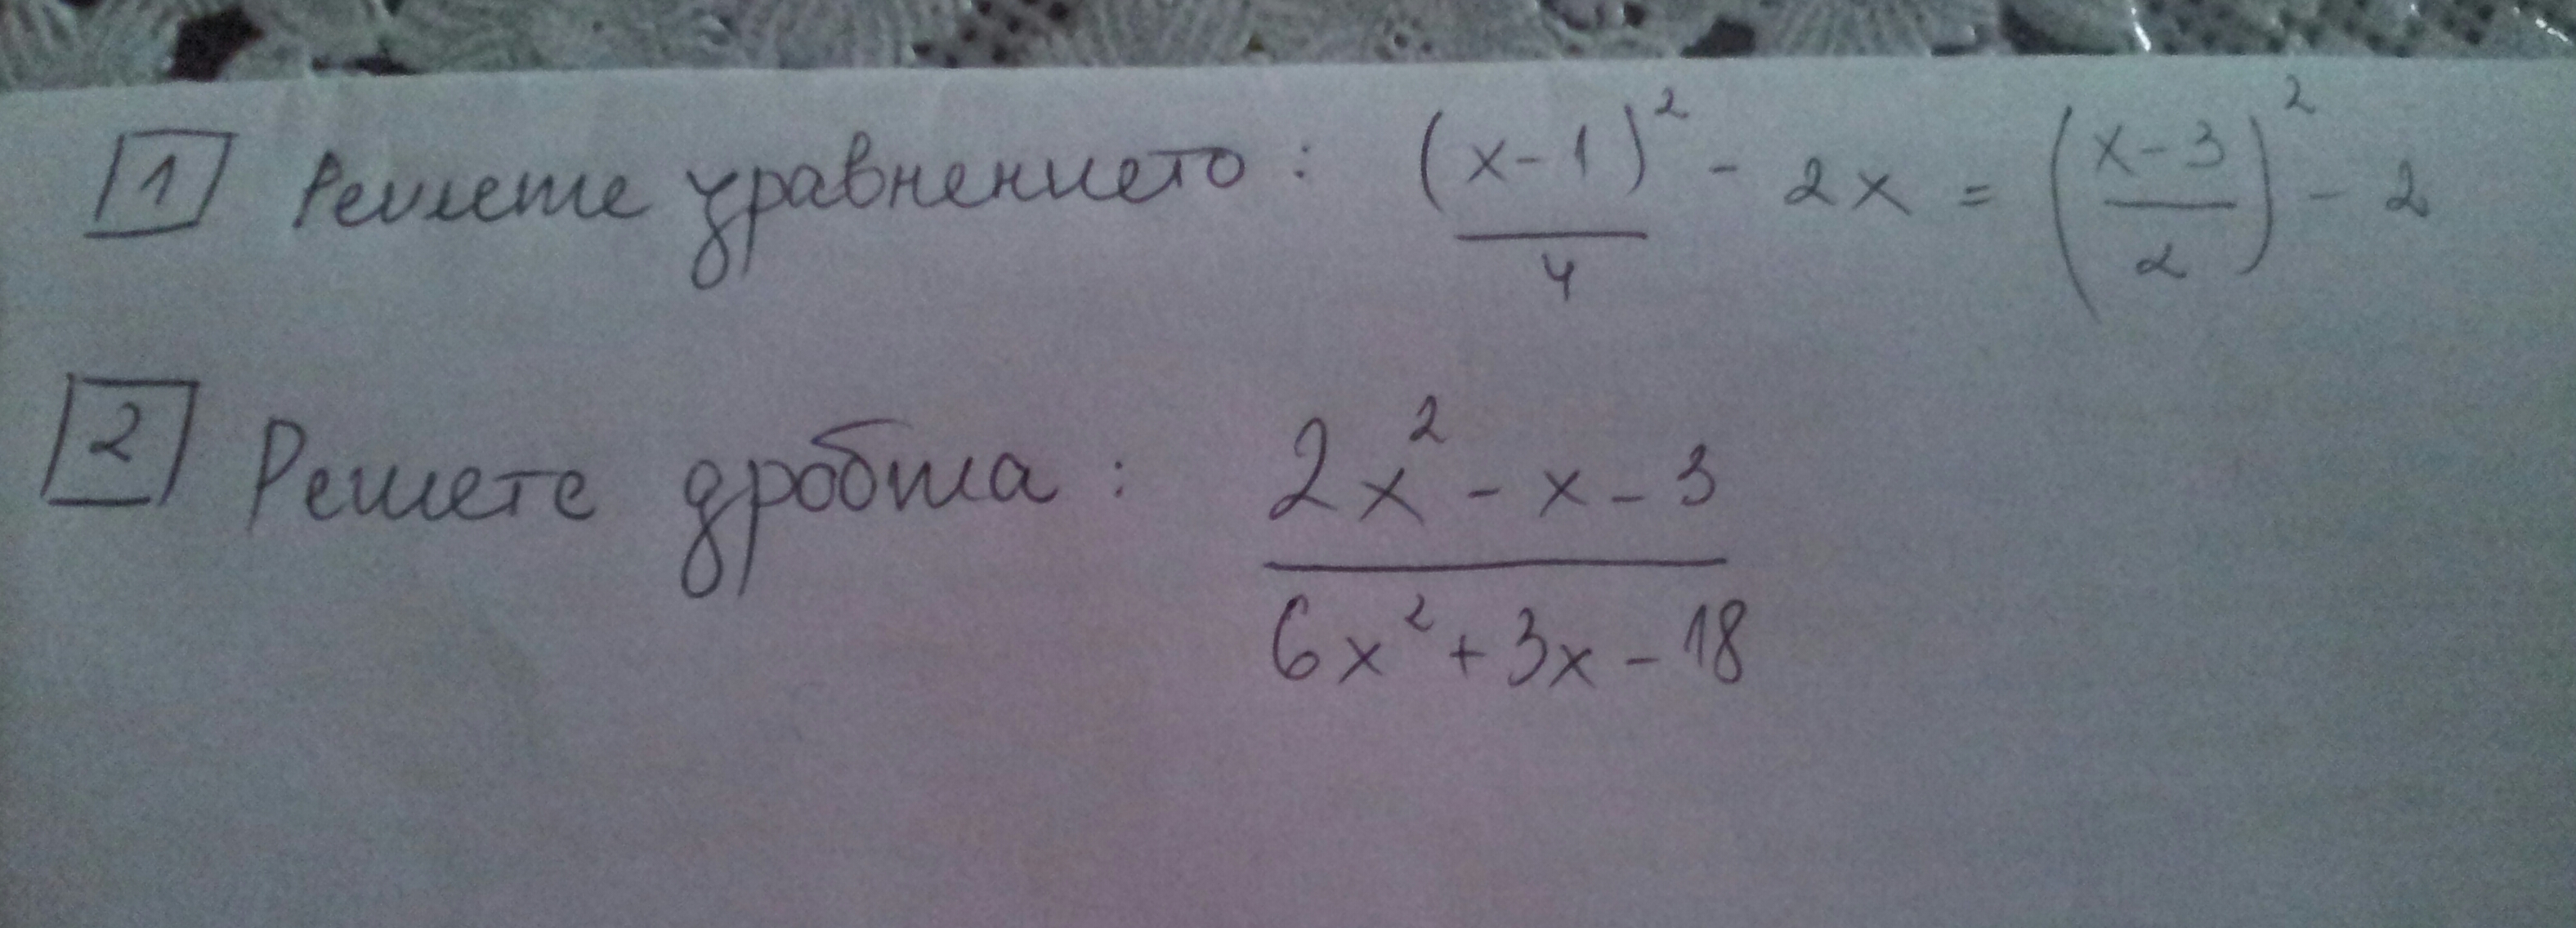 1 Решете уравнението: (x-1)²/4 - 2x = ((x-3)/2)² - 2
2 Решете дробта: (2x² - x - 3)/(6x² + 3x - 18)